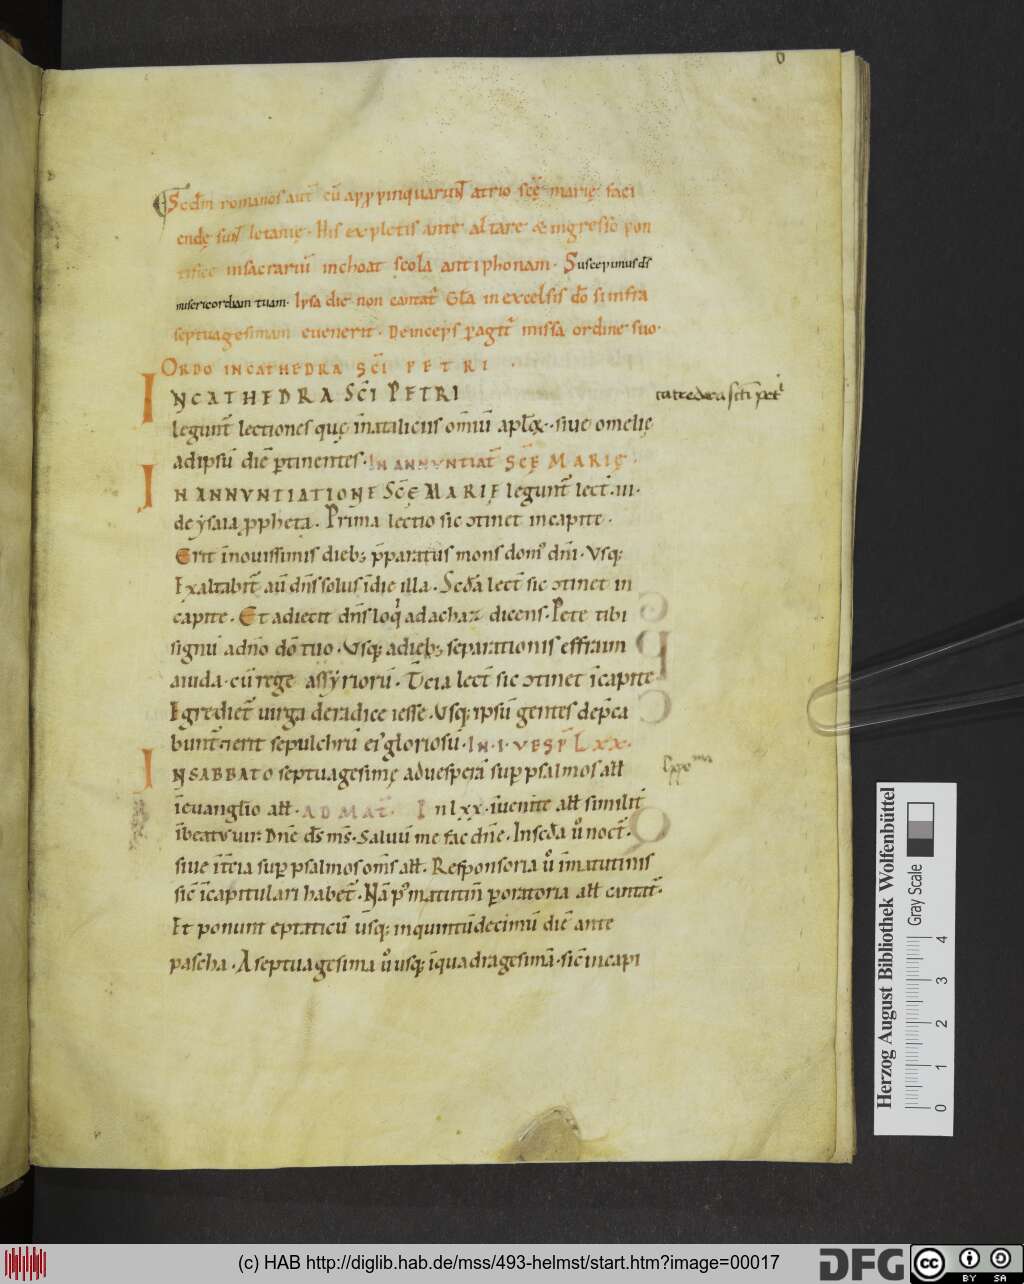 Scdm romanos aut̄ cū appropinquarunt atrio scę marię faci
endę sunt letanię. His expletis ante altare & ingresso pon
tifice insacrariū inchoat scola antiphonam. Suscepimus ds
misericordiam tuam. Ipsa die non cantat̄ Gła in excelsis dō si infra
septuagesimam evenerit. Deinceps pagit̄ missa ordine suo.
ORDO IN CATHEDRA SCĪ PETRI
IN CATHEDRA SCĪ PETRI
catredara scti petri
legunt̄ lectiones quę in nataliciis omiū aplox. siue omelię
ad ipsū diē ptinentes. IN ANNVNTIAT SCĘ MARIĘ.
IN ANNVNTIATIONE SCĘ MARIE legunt̄ lect̄. iii.
de ysaia ppheta. Prima lectio sic ↄtinet in capite.
Erit in nouissimis dieb; p̄paratus mons dom' dn̄i. Vsq;
Exaltabit̄ aū dn̄s solus ī die illa. Scda lect̄ sic ↄtinet in
capite. Et adiecit dn̄s loqi ad achaz dicens. Pete tibi
signū a dn̄o dō tuo. Vsq; a dieb; separationis effraim
a iuda. cū rege assyriorū. T̄cia lect̄ sic ↄtinet ī capite
Egrediet̄ uirga de radice iesse. Vsq; ipsū gentes depca
bunt̄. & erit sepulchrū ei' gloriosū. IN. I. VESP̄ LXX.
IN SABBATO septuagesimę ad uesperā sup psalmos all
ī euanglio all. AD MAT̄. In lxx. iuenite all similit̄
ī beatus uir: Dn̄e ds ms. Saluū me fac dn̄e. In scda ů noct̄.
siue ī t̄cia sup psalmos om̄s all. Responsoria ů ī matutinis
sic̄ ī capitulari habet̄. Nā p' matutin̄ p oratoria all cantat̄.
Et ponunt eptaticū usq; in quintūdecimū diē ante
pascha. A septuagesima ů usq; ī quadragesimā. sic̄ in capi
Herzog August Bibliothek Wolfenbüttel
Gray Scale
0 1 2 3 4
(c) HAB http://diglib.hab.de/mss/493-helmst/start.htm?image=00017
DFG
cc BY SA